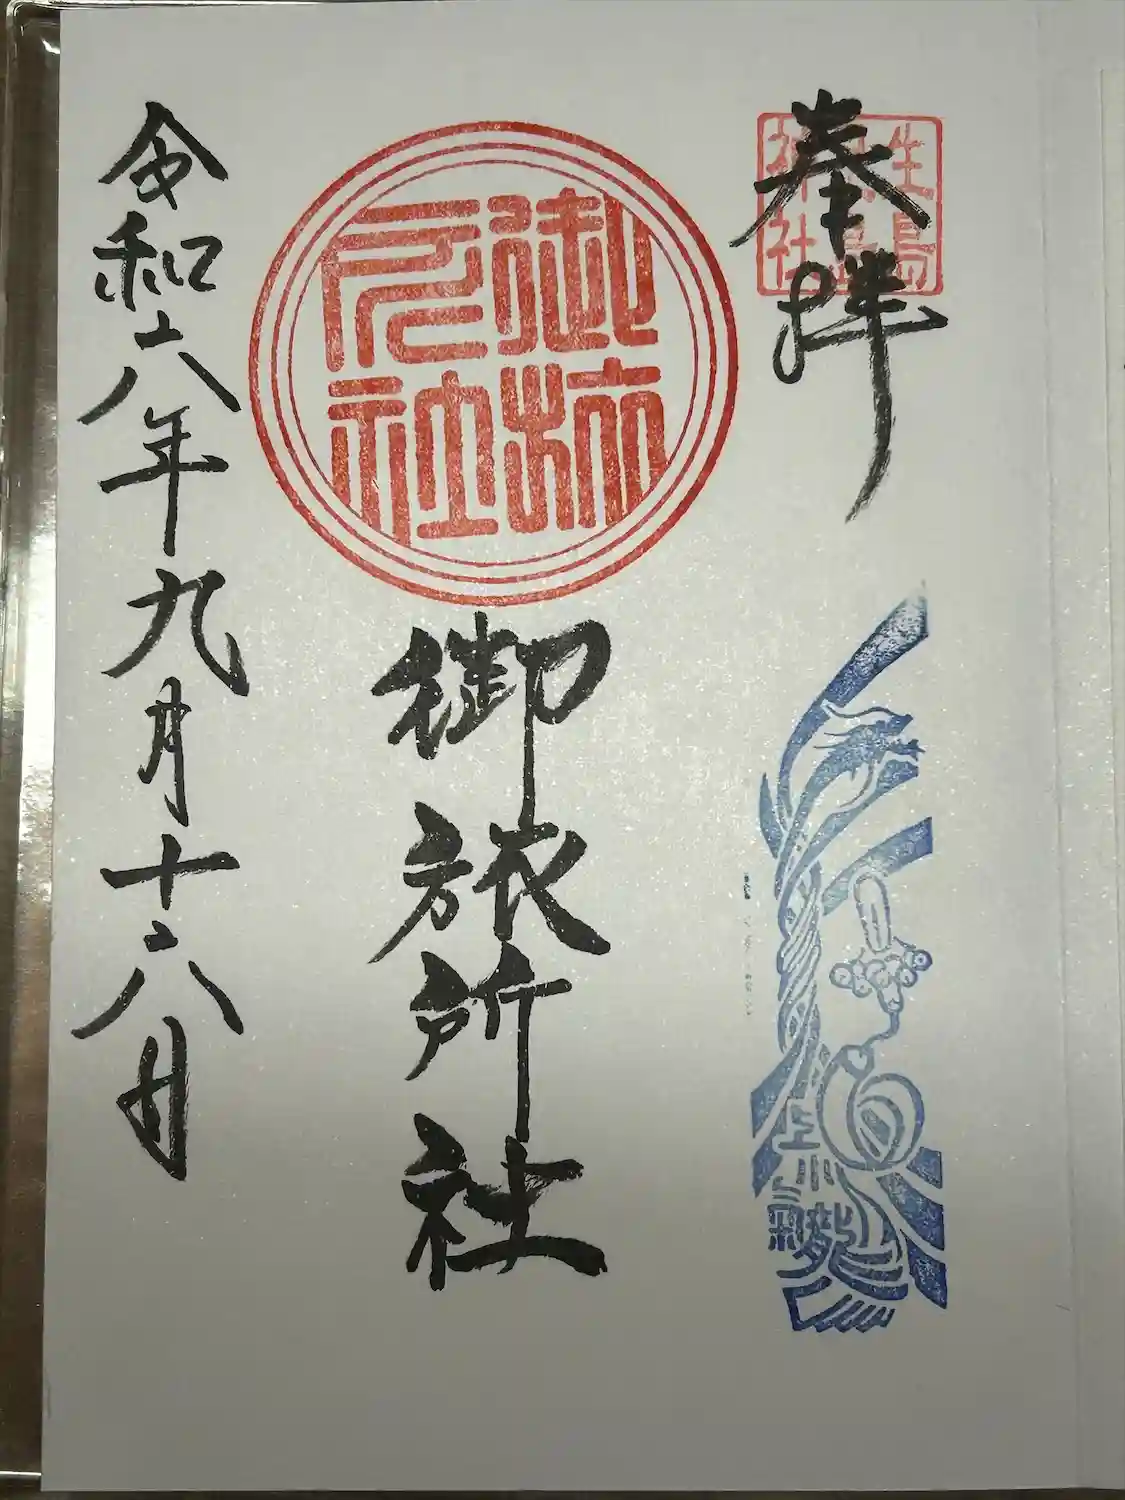 奉拝
生島
神社
御旅所社
御旅所社
令和六年九月十八日